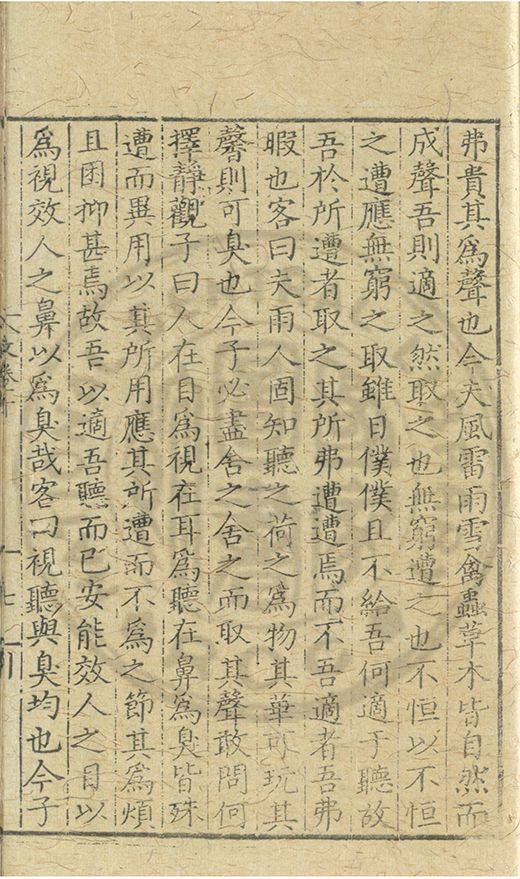 弗貴其為聲也今夫風雷雨雪禽蟲草木皆自然而
成聲吾則適之然取之也無窮遭之也不恒以不恒
之遭應無窮之取雖日僕僕且不給吾何適于聽故
吾於所遭者取之其所弗遭遭焉而不吾適者吾弗
暇也客曰夫雨人固知聽之荷之為物其華可玩其
馨則可臭也今子必盡舍之舍之而取其聲敢問何
擇靜觀子曰人在目為視在耳為聽在鼻為臭皆殊
遭而異用以其所用應其所遭而不為之節其為煩
且困抑甚焉故吾以適吾聽而已安能效人之目以
為視效人之鼻以為臭哉客曰視聽與臭均也今子